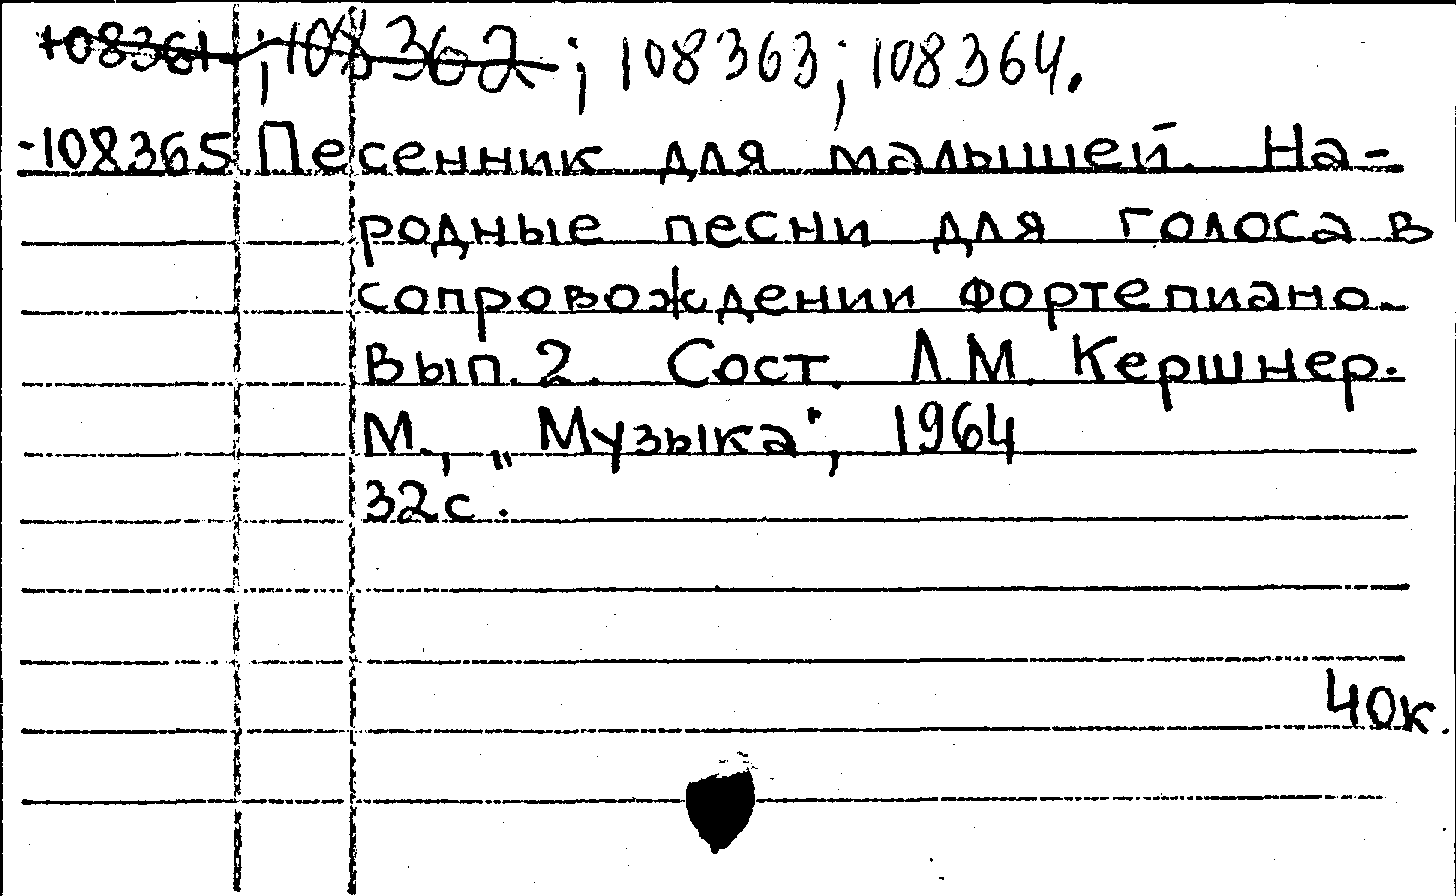 108361; 108362; 108363; 108364.
-108365 Песенник для малышей. На-
родные песни для голоса в
сопровождении фортепиано.
Вып. 2. Сост. Л.М. Кершнер.
М., „Музыка", 1964
32с.
40к.